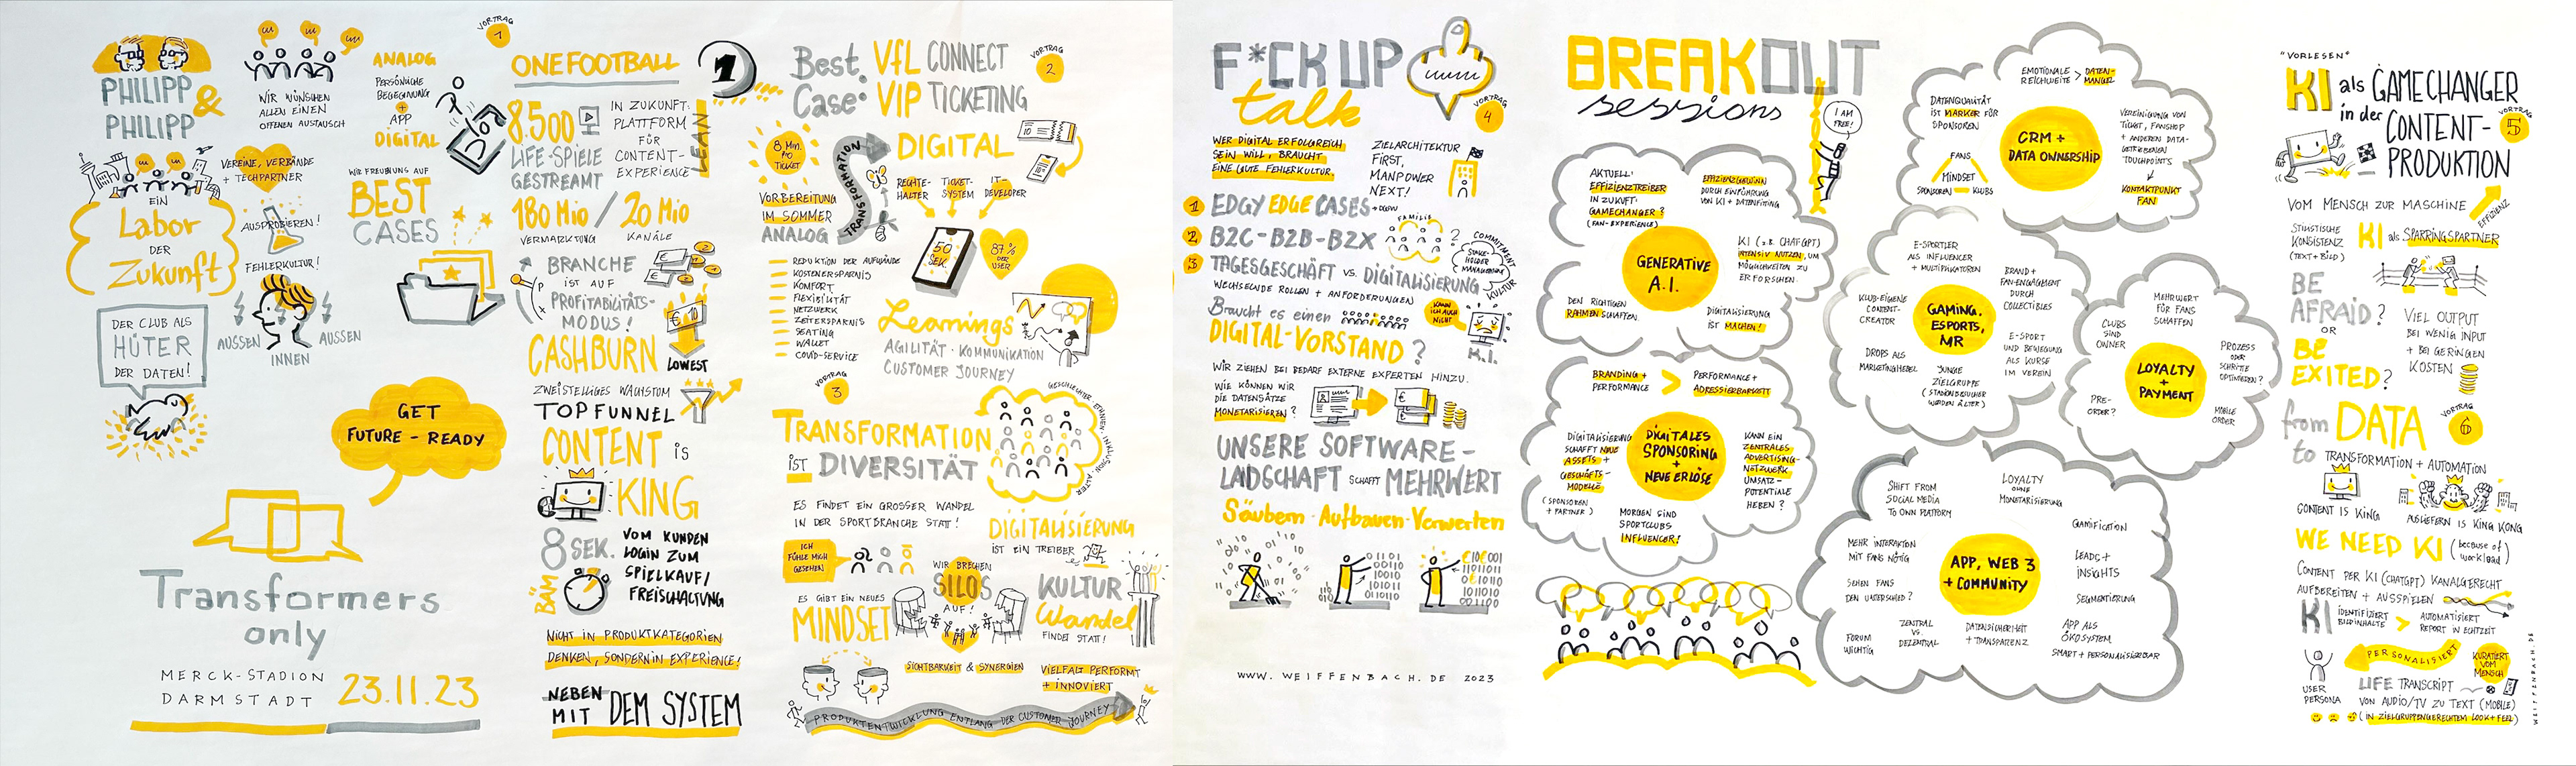 PHILIPP
&
PHILIPP
WIR WÜNSCHEN
ALLEN EINEN
OFFENEN AUSTAUSCH
VEREINE, VERBÄNDE
+ TECHPARTNER
EIN
Labor
DER
Zukunft
AUSPROBIEREN!
FEHLERKULTUR!
AUSSEN
INNEN
AUSSEN
DER CLUB ALS
HÜTER
DER DATEN!
ANALOG
PERSÖNLICHE
BEGEGNUNG
+
APP
DIGITAL
WIR FREUEN UNS AUF
BEST
CASES
GET
FUTURE - READY
Transformers
only
MERCK-STADION
DARMSTADT
23.11.23
VORTRAG
1
ONEFOOTBALL
1
8.500
LIFE-SPIELE
GESTREAMT
IN ZUKUNFT:
PLATTFORM
FÜR
CONTENT-
EXPERIENCE
LEAN
180 Mio / 20 Mio
VERMARKTUNG
KANÄLE
BRANCHE
IST AUF
PROFITABILITÄTS-
MODUS!
CASHBURN
LOWEST
ZWEISTELLIGES WACHSTUM
TOP FUNNEL
CONTENT is
KING
8 SEK.
BÄM
VOM KUNDEN
LOGIN ZUM
SPIELKAUF/
FREISCHALTUNG
NICHT IN PRODUKTKATEGORIEN
DENKEN, SONDERN IN EXPERIENCE!
NEBEN
MIT DEM SYSTEM
Best
Case:
VfL CONNECT
VIP TICKETING
VORTRAG
2
8 Min.
PRO
TICKET
TRANSFORMATION
DIGITAL
VORBEREITUNG
IM SOMMER
ANALOG
RECHTE-
HALTER
TICKET-
SYSTEM
IT-
DEVELOPER
50
SEK.
87%
DER
USER
REDUKTION DER AUFWÄNDE
KOSTENERSPARNIS
KOMFORT
FLEXIBILITÄT
NETZWERK
ZEITERSPARNIS
SEATING
WALLET
COVID-SERVICE
Learnings
AGILITÄT · KOMMUNIKATION
CUSTOMER JOURNEY
VORTRAG
3
TRANSFORMATION
IST DIVERSITÄT
GESCHLECHTER · ETHNIEN · INKLUSION · ALTER
ES FINDET EIN GROSSER WANDEL
IN DER SPORTBRANCHE STATT!
DIGITALISIERUNG
IST EIN TREIBER
ICH
FÜHLE MICH
GESEHEN
ES GIBT EIN NEUES
MINDSET
WIR BRECHEN
SILOS
AUF!
KULTUR
Wandel
FINDET STATT!
SICHTBARKEIT & SYNERGIEN
VIELFALT PERFORMT
+ INNOVIERT
PRODUKTENTWICKLUNG ENTLANG DER CUSTOMER JOURNEY
F*CK UP
talk
VORTRAG
4
WER DIGITAL ERFOLGREICH
SEIN WILL, BRAUCHT
EINE GUTE FEHLERKULTUR.
ZIELARCHITEKTUR
FIRST,
MANPOWER
NEXT!
1 EDGY EDGE CASES
2 B2C-B2B-B2X
FAMILIE
?
3 TAGESGESCHÄFT VS. DIGITALISIERUNG
COMMITMENT
STAKE-
HOLDER
MANAGEMENT
KULTUR
WECHSELNDE ROLLEN + ANFORDERUNGEN
Braucht es einen
DIGITAL-VORSTAND?
KANN
ICH AUCH
NICHT
K.I.
WIR ZIEHEN BEI BEDARF EXTERNE EXPERTEN HINZU.
WIE KÖNNEN WIR
DIE DATENSÄTZE
MONETARISIEREN?
UNSERE SOFTWARE-
LADSCHAFT SCHAFFT MEHRWERT
Säubern · Aufbauen · Verwerten
WWW. WEIFFENBACH.DE 2023
BREAKOUT
sessions
I AM
FREE!
AKTUELL:
EFFIZIENZTREIBER
IN ZUKUNFT:
GAMECHANGER?
(FAN-EXPERIENCE)
EFFIZIENZGEWINN
DURCH EINFÜHRUNG
VON KI +
GENERATIVE
A.I.
KI (z.B. CHATGPT)
INTENSIV NUTZEN, UM
MÖGLICHKEITEN ZU
ERFORSCHEN.
DEN RICHTIGEN
RAHMEN SCHAFFEN.
DIGITALISIERUNG
IST MACHEN!
BRANDING +
PERFORMANCE
>
PERFORMANCE +
ADRESSIERBARKEIT
DIGITALES
SPONSORING
+
NEUE ERLÖSE
DIGITALISIERUNG
SCHAFFT NEUE
ASSETS +
GESCHÄFTS-
MODELLE
(SPONSOREN
+ PARTNER)
KANN EIN
ZENTRALES
ADVERTISING-
NETZWERK
UMSATZ-
POTENTIALE
HEBEN?
MORGEN SIND
SPORTCLUBS
INFLUENCER!
EMOTIONALE
REICHWEITE > DATEN-
MANGEL
DATENQUALITÄT
IST MARKER FÜR
SPONSOREN
CRM +
DATA OWNERSHIP
FANS
MINDSET
SPONSOREN
KLUBS
VEREINIGUNG VON
TICKET, FANSHOP
+ ANDEREN DATA-
GETRIEBENEN
TOUCHPOINTS
KONTAKTPUNKT
FAN
E-SPORTLER
ALS INFLUENCER
+ MULTIPLIKATOREN
KLUB-EIGENE
CONTENT-
CREATOR
GAMING,
ESPORTS,
MR
BRAND +
FAN-ENGAGMENT
DURCH
COLLECTIBLES
DROPS ALS
MARKETINGHEBEL
E-SPORT
UND BEWEGUNG
ALS KURSE
IM VEREIN
JUNGE
ZIELGRUPPE
(STADIONBESUCHER
WERDEN ÄLTER)
MEHRWERT
FÜR FANS
SCHAFFEN
CLUBS
SIND
OWNER
LOYALTY
+
PAYMENT
PROZESS
ODER
SCHRITTE
OPTIMIEREN?
PRE-
ORDER?
MOBILE
ORDER
SHIFT FROM
SOCIAL MEDIA
TO OWN PLATFORM
LOYALTY
OHNE
MONETARISIERUNG
GAMIFICATION
MEHR INTERAKTION
MIT FANS NÖTIG
APP, WEB 3
+ COMMUNITY
LEADS +
INSIGHTS
SEHEN FANS
DEN UNTERSCHIED?
SEGMENTIERUNG
FORUM
WICHTIG
ZENTRAL
VS.
DEZENTRAL
DATENSICHERHEIT
+ TRANSPARENZ
APP ALS
ÖKOSYSTEM
SMART + PERSONALISIERBAR
"VORLESEN"
KI als GAMECHANGER
in der CONTENT-
PRODUKTION
VORTRAG
5
VOM MENSCH ZUR MASCHINE
EFFIZIENZ
STILISTISCHE
KONSISTENZ
(TEXT + BILD)
KI als SPARRINGSPARTNER
BE
AFRAID?
OR
BE
EXITED?
VIEL OUTPUT
BEI WENIG INPUT
+ BEI GERINGEN
KOSTEN
from DATA
to
VORTRAG
6
TRANSFORMATION + AUTOMATION
CONTENT IS KING
AUSLIEFERN IS KING KONG
WE NEED KI (because of workload)
CONTENT PER KI (CHATGPT) KANALGERECHT
AUFBEREITEN + AUSSPIELEN
KI IDENTIFIZIERT
BILDINHALTE
>
AUTOMATISIERT
REPORT IN ECHTZEIT
PERSONALISIERT
KURATIERT
VOM
MENSCH
USER
PERSONA
LIFE TRANSCRIPT
VON AUDIO/TV ZU TEXT (MOBILE)
(IN ZIELGRUPPENGERECHTEM LOOK + FEEL)
WEIFFENBACH.DE